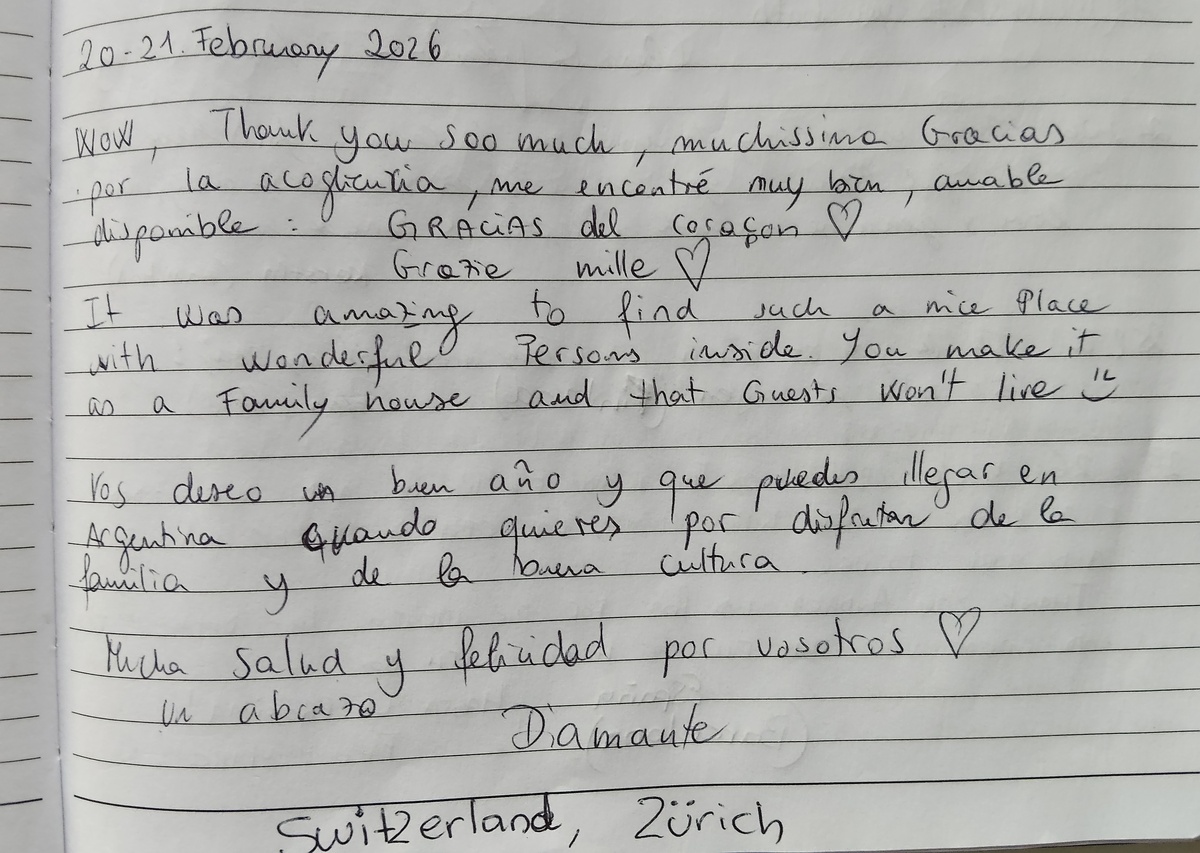 20-21. February 2026
WOW, Thank you soo much, muchissima Gracias
por la acoglienzia, me encontré muy bien, amable
disponible: GRACiAS del coraçon ♡
Grazie mille ♡
It was amazing to find such a nice Place
with wonderful Persons inside. You make it
as a Family house and that Guests won't live
Vos deseo un buen año y que puedes illegar en
Argentina Quando quieres por disfrutar de la
familia y de la buena cultura.
Mucha Salud y felicidad por vosotros ♡
un abrazo
Diamante
Switzerland, Zürich